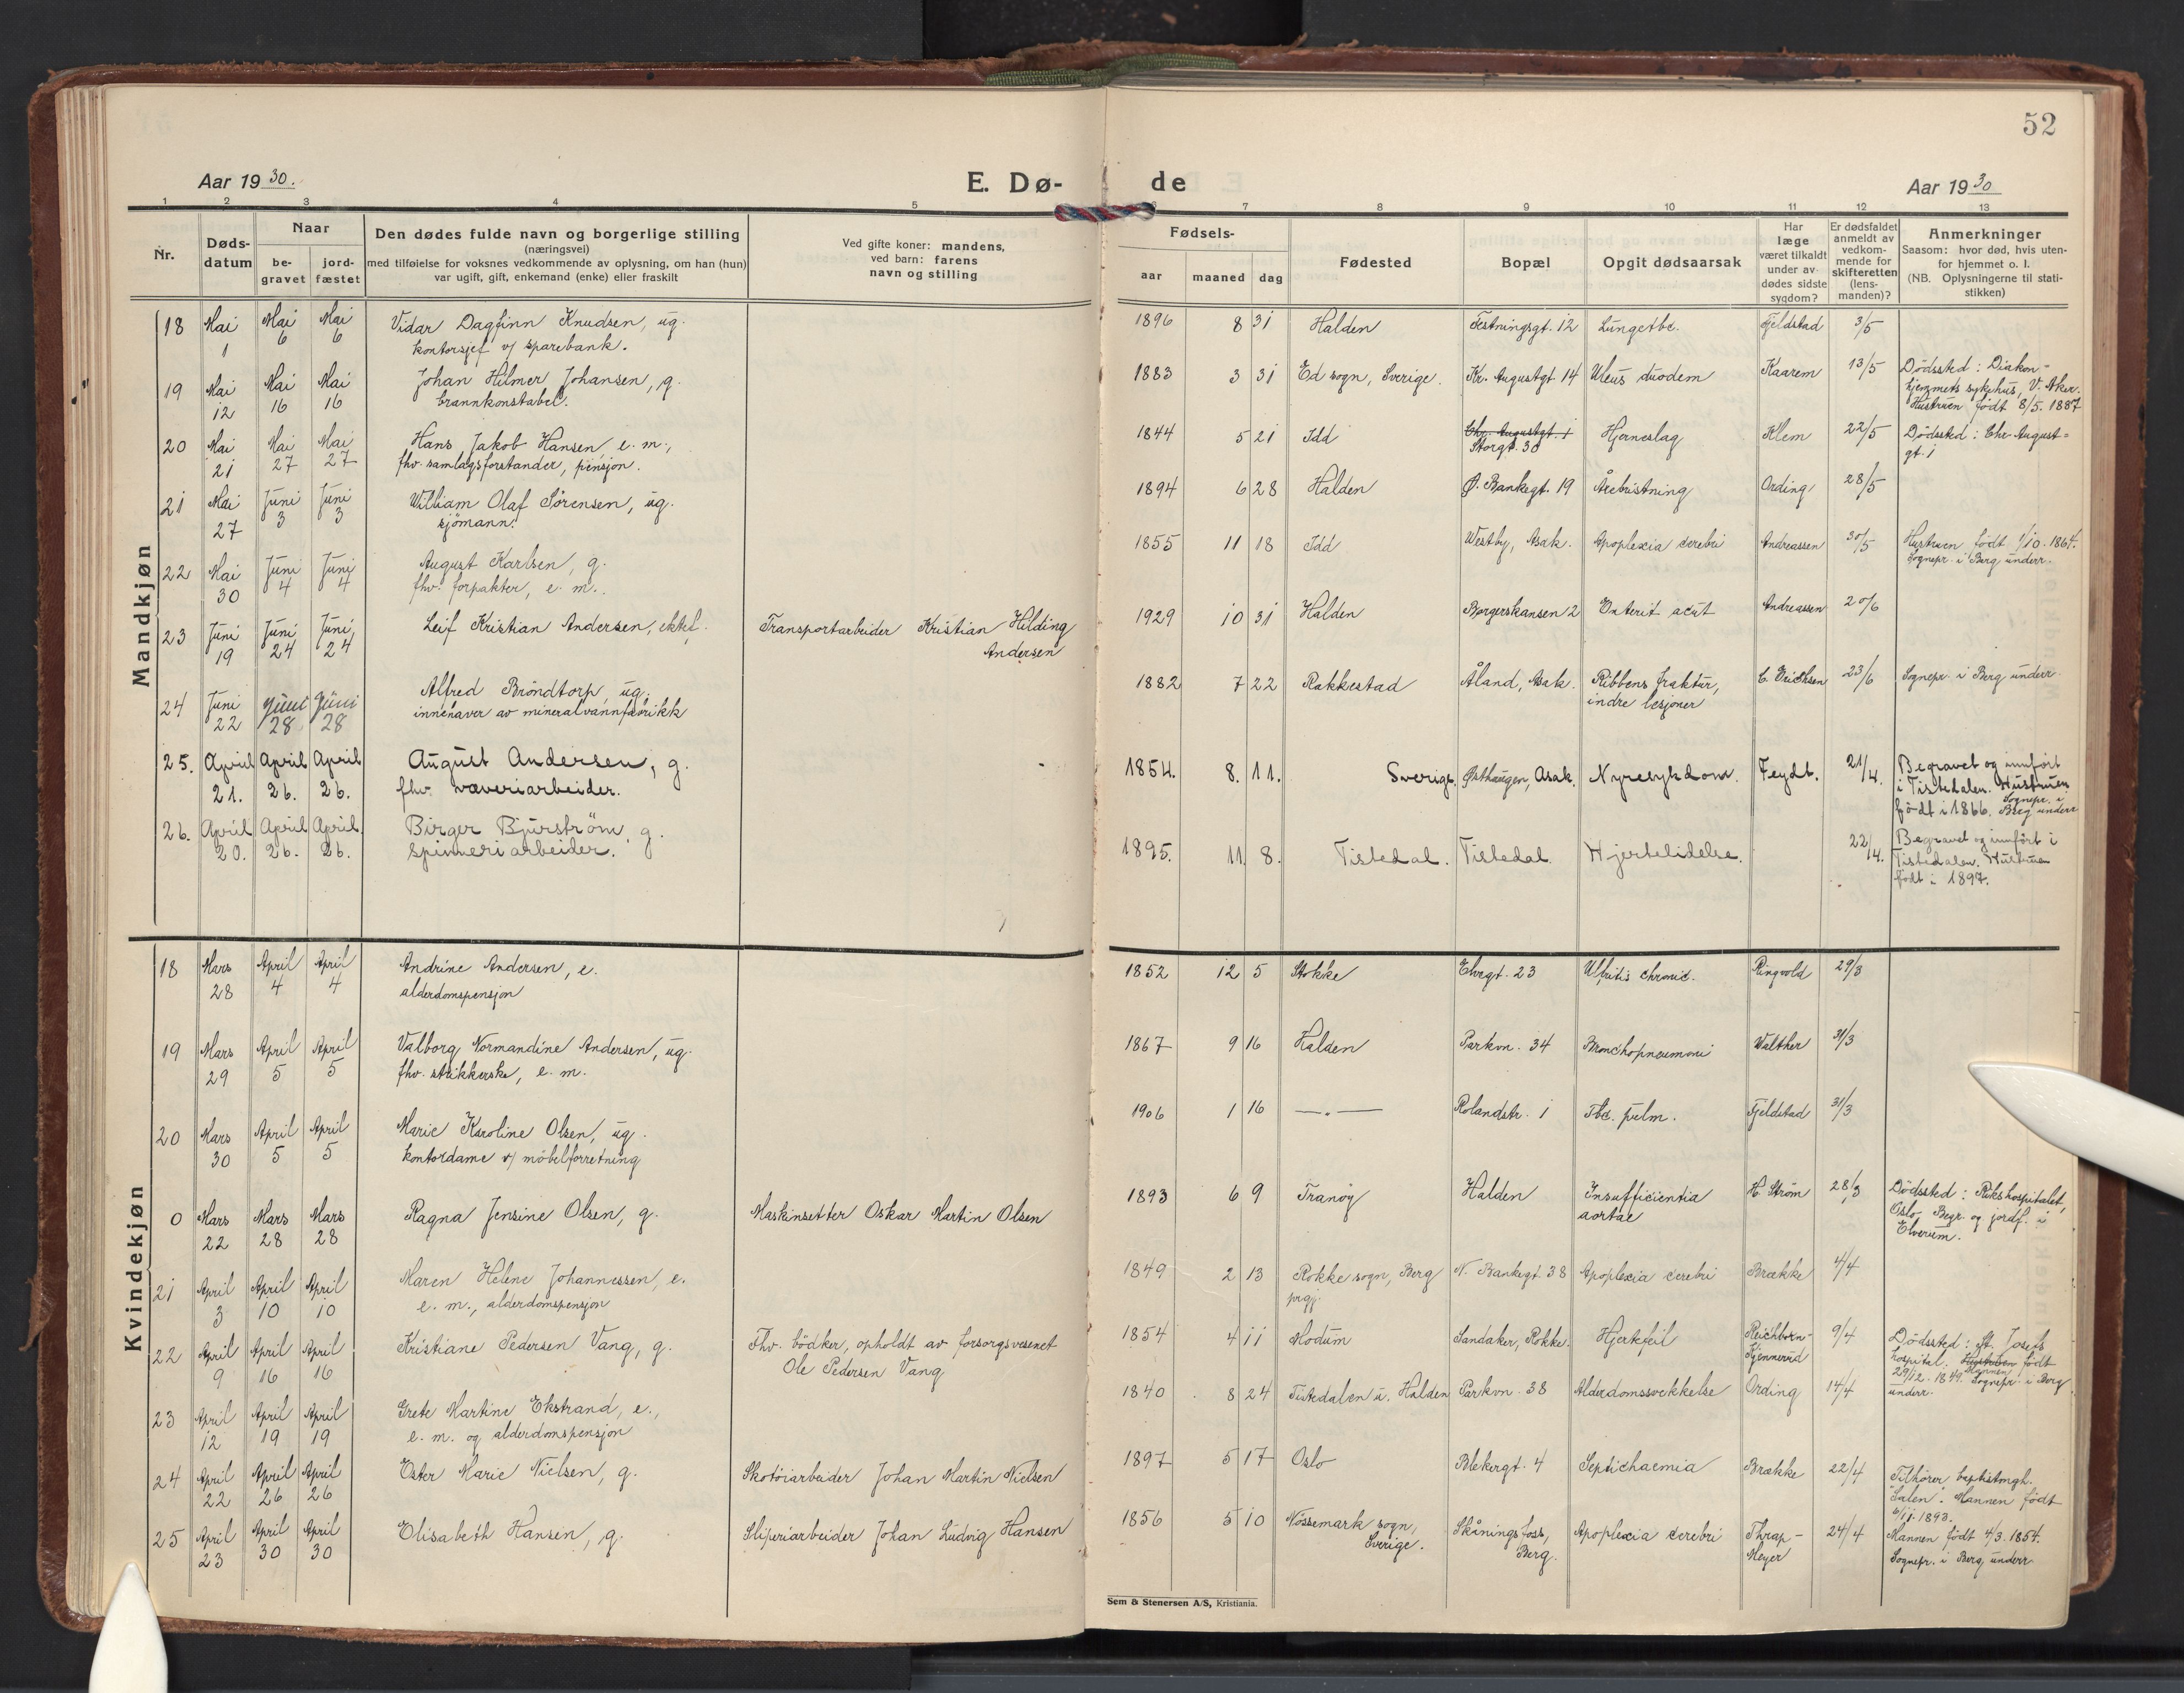 52
Aar 1930.
E. Dø-
de
Aar 1930
1 2 3 4 5 6 7 8 9 10 11 12 13
Nr.
Døds-
datum
Naar
be-
gravet
jord-
fæstet
Den dødes fulde navn og borgerlige stilling
(næringsvei)
med tilføielse for voksnes vedkommende av oplysning, om han (hun)
var ugift, gift, enkemand (enke) eller fraskilt
Ved gifte koner: mandens,
ved barn: farens
navn og stilling
Fødsels-
aar
maaned
dag
Fødested
Bopæl
Opgit dødsaarsak
Har
læge
været tilkaldt
under av-
dødes sidste
sygdom?
Er dødsfaldet
anmeldt av
vedkom-
mende for
skifteretten
(lens-
manden)?
Anmerkninger
Saasom: hvor død, hvis uten-
for hjemmet o. l.
(NB. Oplysningerne til stati-
stikken)
Mandkjøn
18 Mai Mai Mai Vidar Dagfinn Knudsen, ug. 1896 8 31 Halden Festningsgt. 12 Lungetbc. Fjeldstad 3/5
1 6 6 kontorsjef v/ sparebank.
19 Mai Mai Mai Johan Hilmer Johansen, g. 1883 3 31 Ed sogn, Sverige. Kr. Augustgt. 14 Ulcus duoden Kaarem 13/5 Dödssted: Diakon-
12 16 16 brannkonstabel. hjemmets sykehus, V. Aker.
Hustruen født 8/5. 1887
20 Mai Mai Mai Hans Jakob Hansen, e. m., 1844 5 21 Idd Chr. Augustgt. 1 Hjerneslag Klem 22/5 Dödssted: Chr. August=
21 27 27 fhv. samlagsforstander, pensjon. Storgt. 30 gt. 1
21 Mai Juni Juni William Olaf Sørensen, ug. 1894 6 28 Halden Ø. Bankegt. 19 Årebristning Ording 28/5
27 3 3 sjömann.
22 Mai Juni Juni August Karlsen, g. 1855 11 18 Idd Westby, Asak. Apoplexia cerebri Andreassen 30/5 Hustruen født 1/10. 1864.
30 4 4 fhv. forpakter, e. m. Sognepr. i Berg underr.
23 Juni Juni Juni Leif Kristian Andersen, ektef. Transportarbeider Kristian Hilding 1929 10 31 Halden Borgerskansen 2 Enterit acut Andreassen 20/6
19 24 24 Andersen
24 Juni Juni Juni Alfred Bröndtorp, ug. 1882 7 22 Rakkestad Åland, Asak. Ribbens fraktur, C. Erichsen 23/6 Sognepr. i Berg underr.
22 28 28 innehaver av mineralvannfabrikk indre lesjoner
25. April April April August Andersen, g. 1854. 8. 11. Sverige. Østhaugen, Asak. Nyresykdom. Feydt. 21/4. Begravet og innført
21. 26. 26. fhv. væveriarbeider. i Tistedalen. Hustruen
født i 1866. Sognepr. i Berg underr
26. April April April Birger Bjurstrøm, g. 1895. 11. 8. Tistedal. Tistedal. Hjertelidelse. 22/4. Begravet og innført i
20. 26. 26. spinneriarbeider. Tistedalen. Hustruen
født i 1897.
Kvindekjøn
18 Mars April April Andrine Andersen, e. 1852 12 5 Stokke Elvegt. 23 chronic. Ringvold 29/3
28 4 4 alderdomspensjon
19 Mars April April Valborg Normandine Andersen, ug. 1867 9 16 Halden Parkvn. 34 Bronchopneumoni Walther 31/3
29 5 5 fhv. strikkerske, e. m.
20 Mars April April Marie Karoline Olsen, ug. 1906 1 16 —.— Rolandstr. 1 Tbc. pulm. Fjeldstad 31/3
30 5 5 kontordame v/ möbelforretning
0 Mars Mars Mars Ragna Jensine Olsen, g. Maskinsetter Oskar Martin Olsen 1893 6 9 Tranöy Halden Insufficientia H. Ström 28/3 Dödssted: Rikshospitalet,
22 28 28 aortae Oslo. Begr. og jordf. i
Elverum.
21 April April April Maren Helene Johannessen, e. 1849 2 13 Rokke sogn, Berg N. Bankegt. 38 Apoplexia cerebri Brække 4/4
3 10 10 e. m., alderdomspensjon prgj.
22 April April April Kristiane Pedersen Vang, g. Fhv. bödker, opholdt av forsorgsvesenet 1854 4 11 Modum Sandaker, Rokke. Hjertefeil Reichborn- 9/4 Dödssted: St. Josefs
9 16 16 Ole Pedersen Vang Kjennerud hospital. Hustruen Mannen født
29/12. 1849. Sognepr. i Berg
underr.
23 April April April Grete Martine Ekstrand, e., 1840 8 24 Tistedalen u. Halden Parkvn. 38 Alderdomssvekkelse Ording 14/4
12 19 19 e. m. og alderdomspensjon
24 April April April Ester Marie Nielsen, g. Skotöiarbeider Johan Martin Nielsen 1897 5 17 Oslo Blekergt. 4 Septichaemia Brække 22/4 Tilhörer baptistmgh.
22 26 26 "Salen". Mannen født
6/11. 1893.
25 April April April Elisabeth Hansen, g. Sliperiarbeider Johan Ludvig Hansen 1856 5 10 Nössemark sogn, Skåningsfoss, Apoplexia cerebri Thrap- 24/4 Mannen født 4/3. 1854.
23 30 30 Sverige. Berg. Meyer Sognepr. i Berg underr.
Sem & Stenersen A/S, Kristiania.